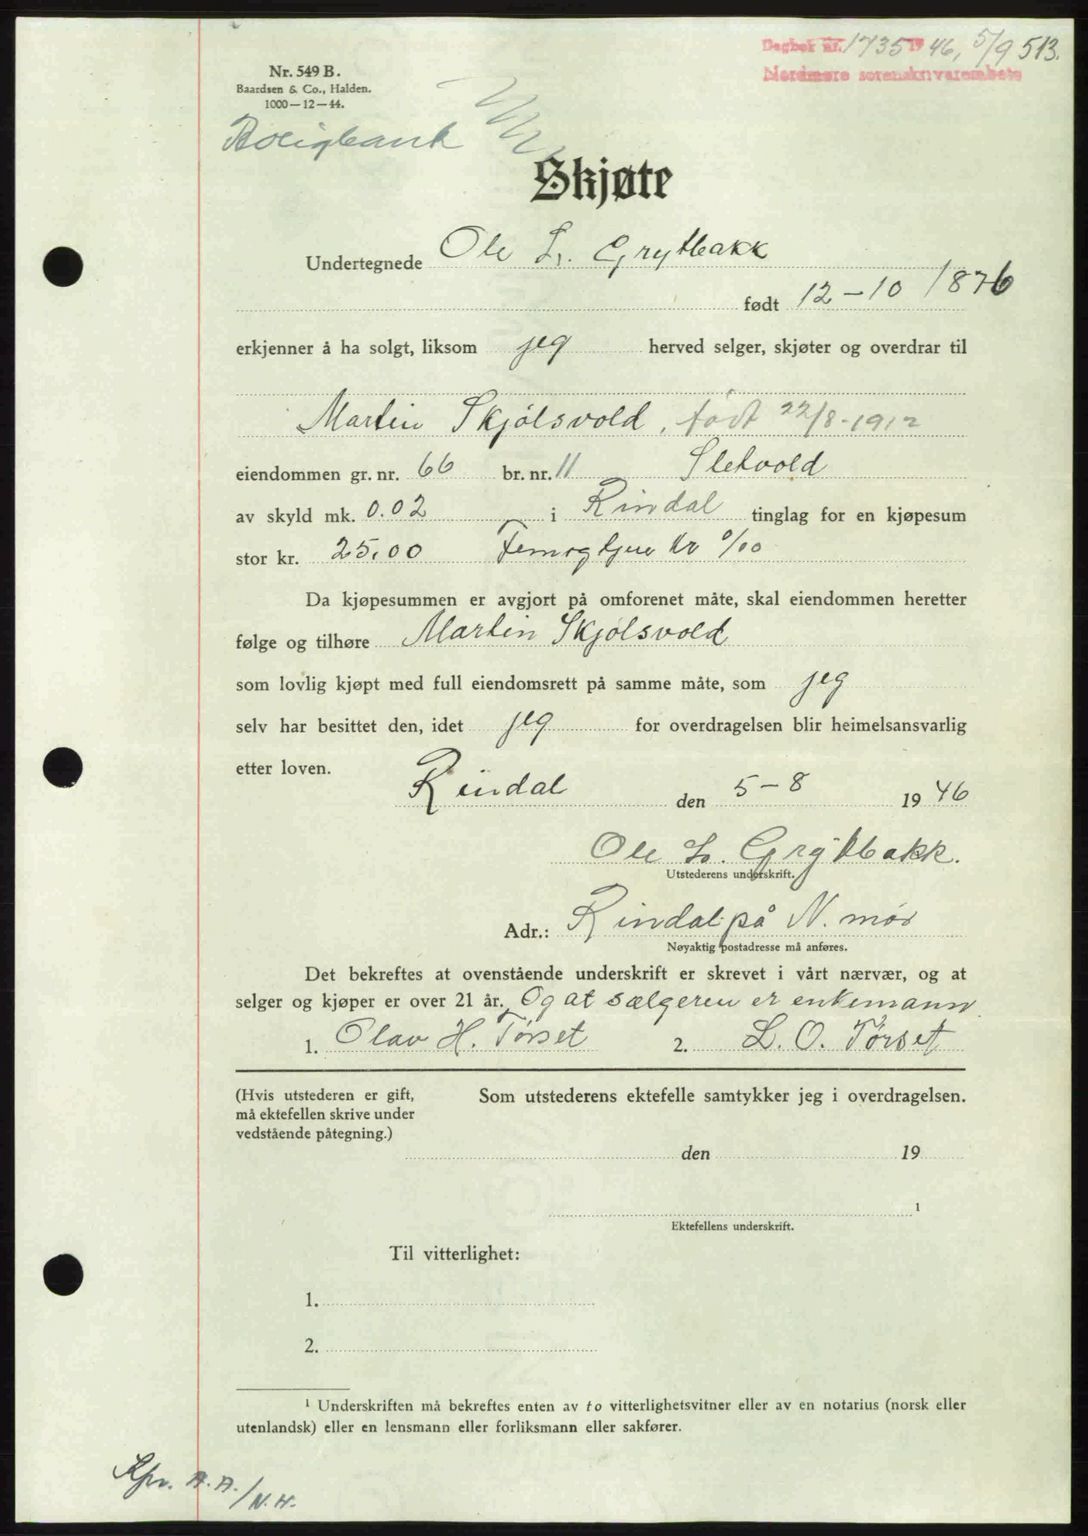 Dagbok nr. 1735 1946, 5/9 513.
Nordmøre sorenskriverembete
Nr. 549 B.
Baardsen & Co., Halden.
1000—12—44.
Boligbank
Skjøte
Undertegnede Ole L. Grytbakk
født 12-10 1876
erkjenner å ha solgt, liksom jeg herved selger, skjøter og overdrar til
Martin Skjølsvold, født 22/8-1912
eiendommen gr. nr. 66 br. nr. 11 Sletvold
av skyld mk. 0.02 i Rindal tinglag for en kjøpesum
stor kr. 25,00 Femogtjue kr 0/00
Da kjøpesummen er avgjort på omforenet måte, skal eiendommen heretter
følge og tilhøre Martin Skjølsvold
som lovlig kjøpt med full eiendomsrett på samme måte, som jeg
selv har besittet den, idet jeg for overdragelsen blir heimelsansvarlig
etter loven.
Rindal den 5-8 1946
Ole L. Grytbakk.
Utstederens underskrift.
Adr.: Rindal på N. mør
Nøyaktig postadresse må anføres.
Det bekreftes at ovenstående underskrift er skrevet i vårt nærvær, og at
selger og kjøper er over 21 år. Og at sælgeren er enkemann.
1. Olav H. Tørset 2. L. O. Tørset
(Hvis utstederen er gift, Som utstederens ektefelle samtykker jeg i overdragelsen.
må ektefellen skrive under
vedstående påtegning.)
den 19
1
Ektefellens underskrift.
Til vitterlighet:
1.
2.
1 Underskriften må bekreftes enten av to vitterlighetsvitner eller av en notarius (norsk eller
utenlandsk) eller en lensmann eller forliksmann eller sakfører.
Kpr. A.A./N.H.